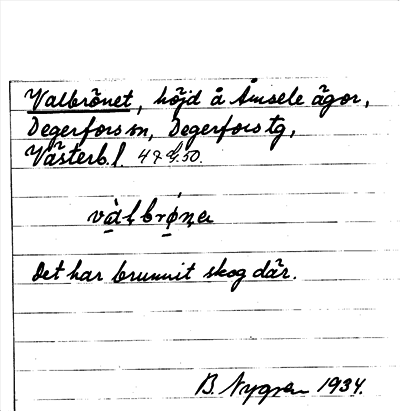 Valbrönet, höjd å Åmsele ägor,
Degerfors sn, Degerfors tg,
Västerb. l
vàlbrǿna
Det har brunnit skog där.
B. Nygren 1934.